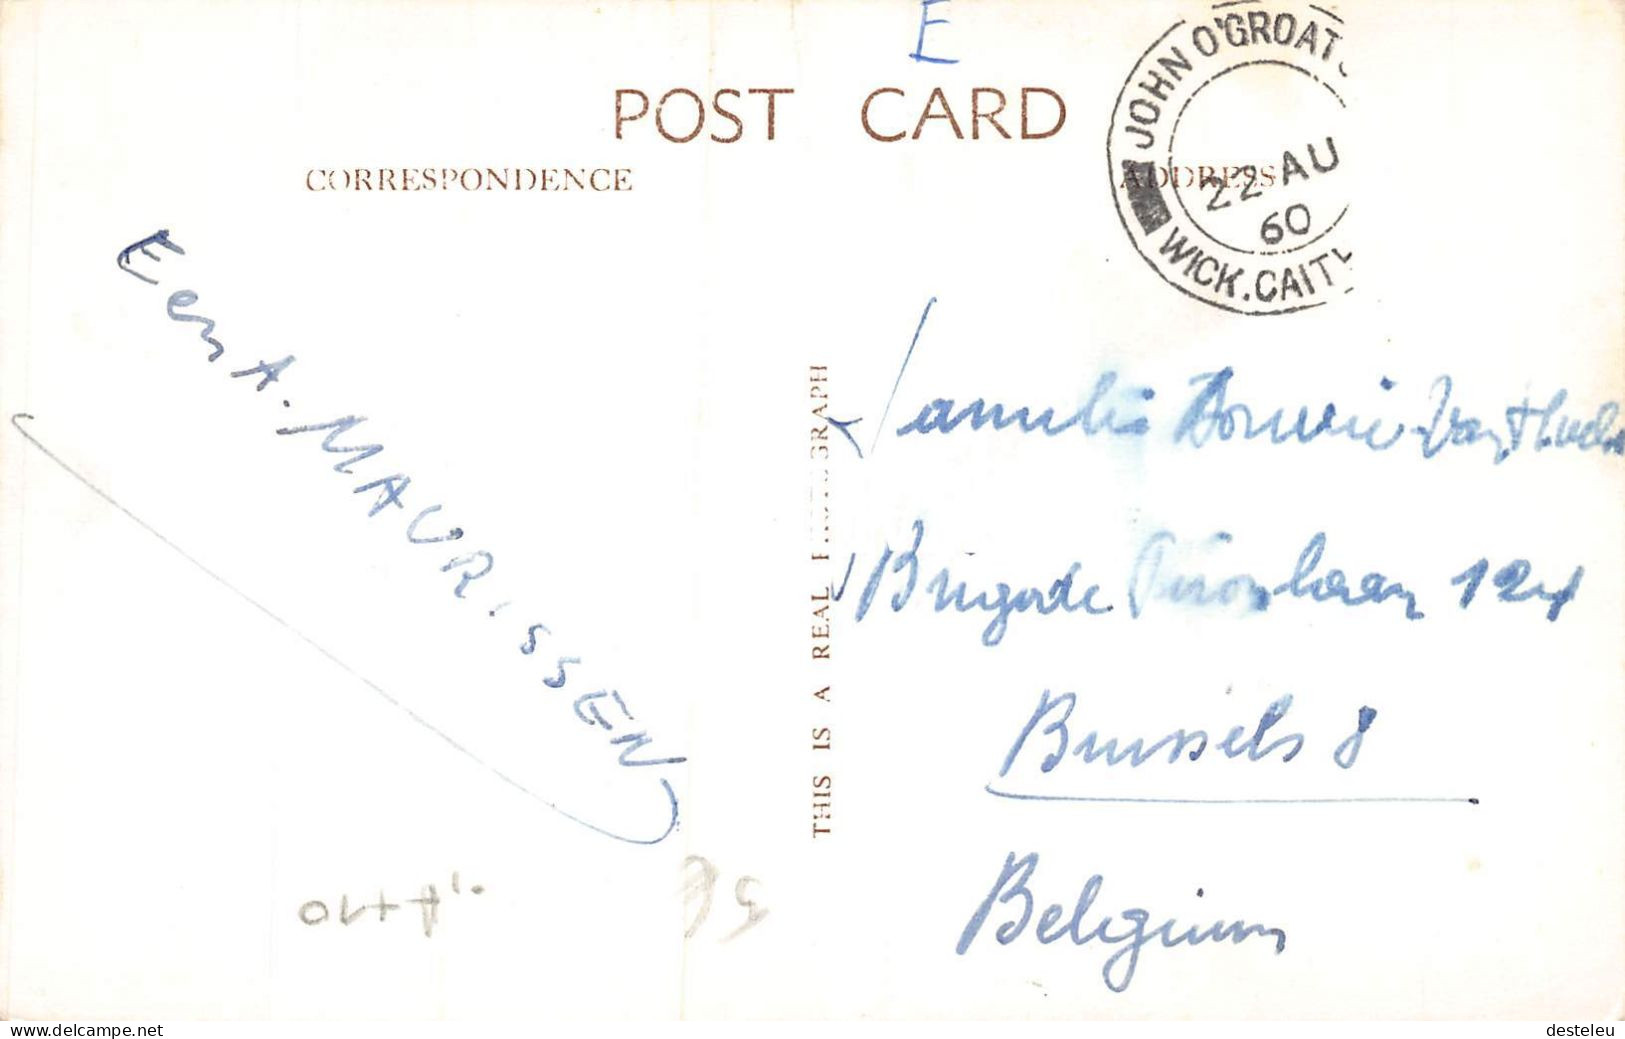 E
POST CARD
CORRESPONDENCE
ADDRESS
JOHN O'GROATS
22 AU
60
WICK. CAITH
E en A. MAURISSEN
THIS IS A REAL PHOTOGRAPH
Familie
Brigade Pironlaan 124
Brussels 8
Belgium
delcampe.net
desteleu